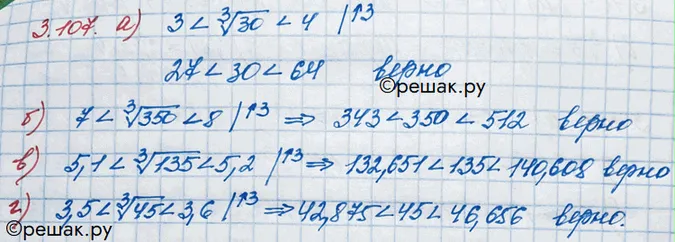 3.107. а) 3 < ∛30 < 4 | ↑3
27 < 30 < 64 верно
©решак.ру
б) 7 < ∛350 < 8 | ↑3 ⇒ 343 < 350 < 512 верно
в) 5,1 < ∛135 < 5,2 | ↑3 ⇒ 132,651 < 135 < 140,608 верно
г) 3,5 < ∛45 < 3,6 | ↑3 ⇒ 42,875 < 45 < 46,656 верно.
©решак.ру